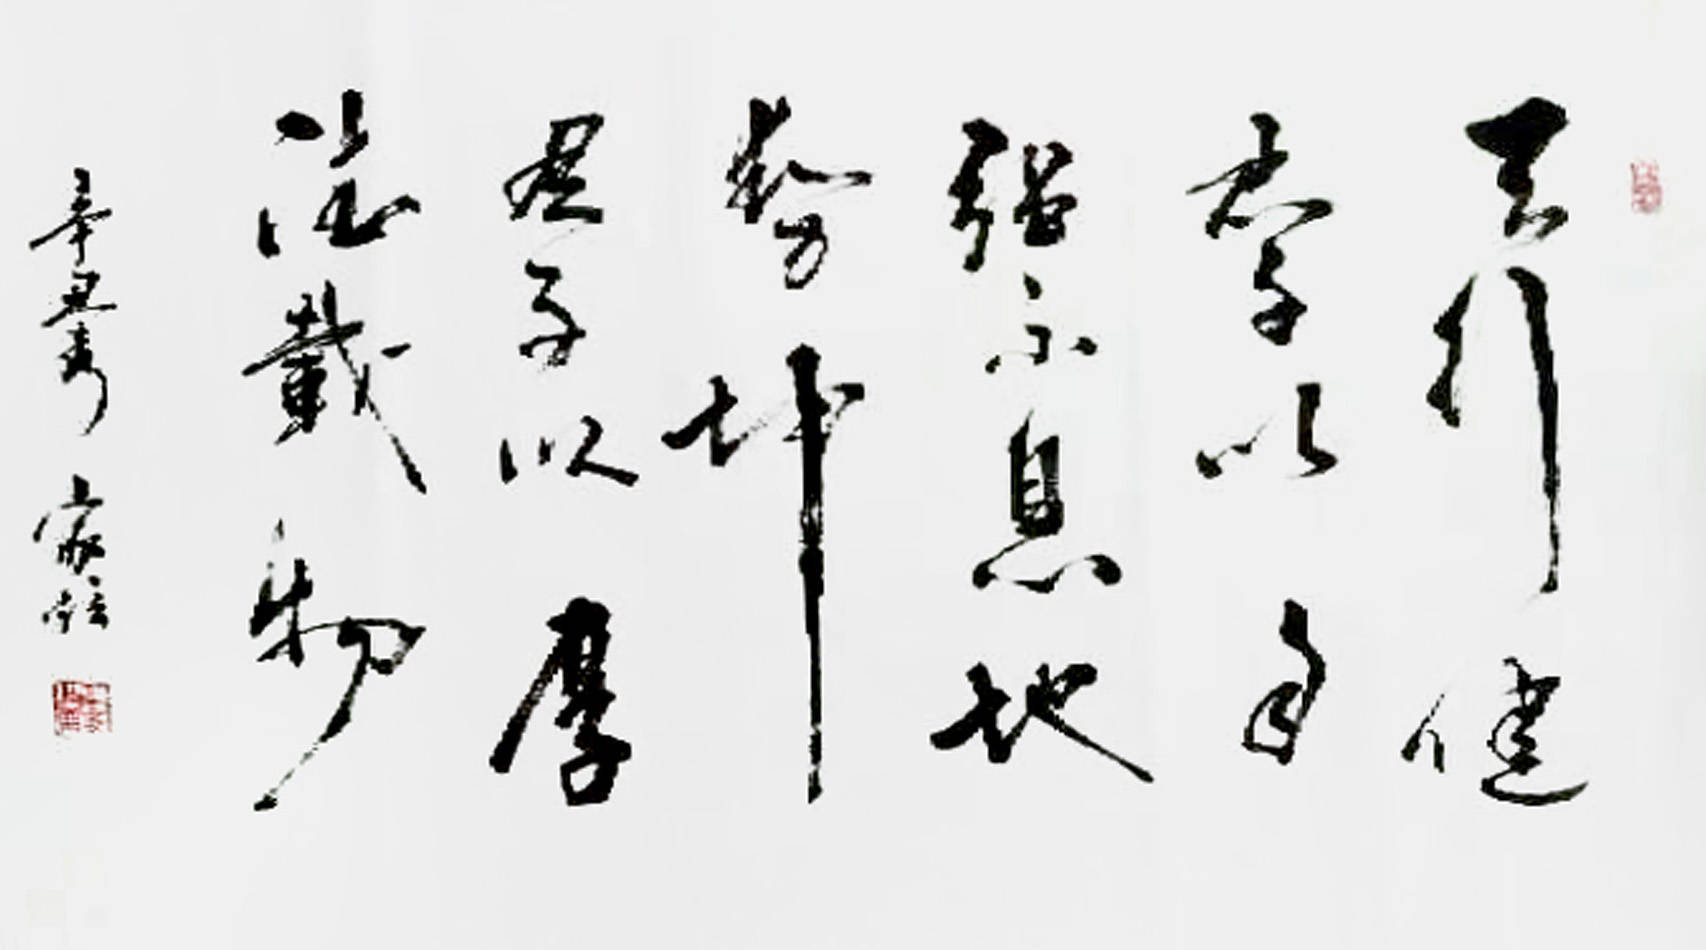 天行健
君子以自
强不息地
势坤
君子以厚
德载物
辛丑春 家